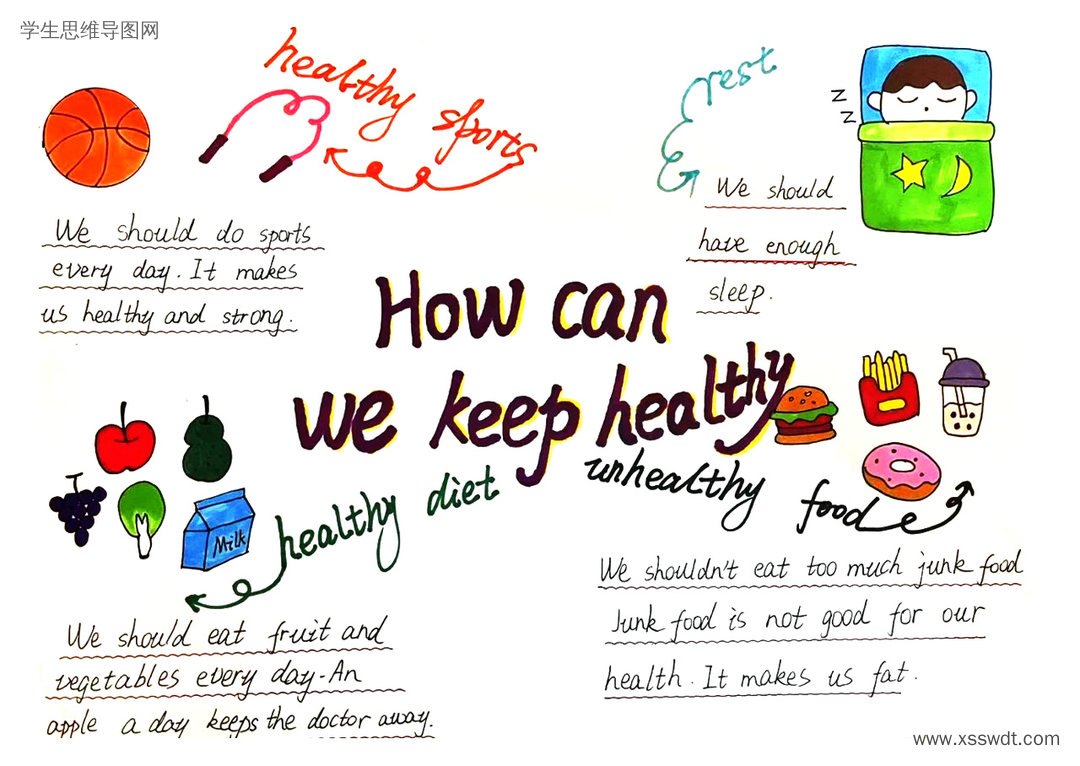 学生思维导图网
healthy sports
rest
z
z
We should do sports
every day. It makes
us healthy and strong.
We should
have enough
sleep.
How can
we keep healthy
Milk
healthy diet
unhealthy food
We should eat fruit and
vegetables every day. An
apple a day keeps the doctor away.
We shouldn't eat too much junk food
Junk food is not good for our
health. It makes us fat.
www.xsswdt.com